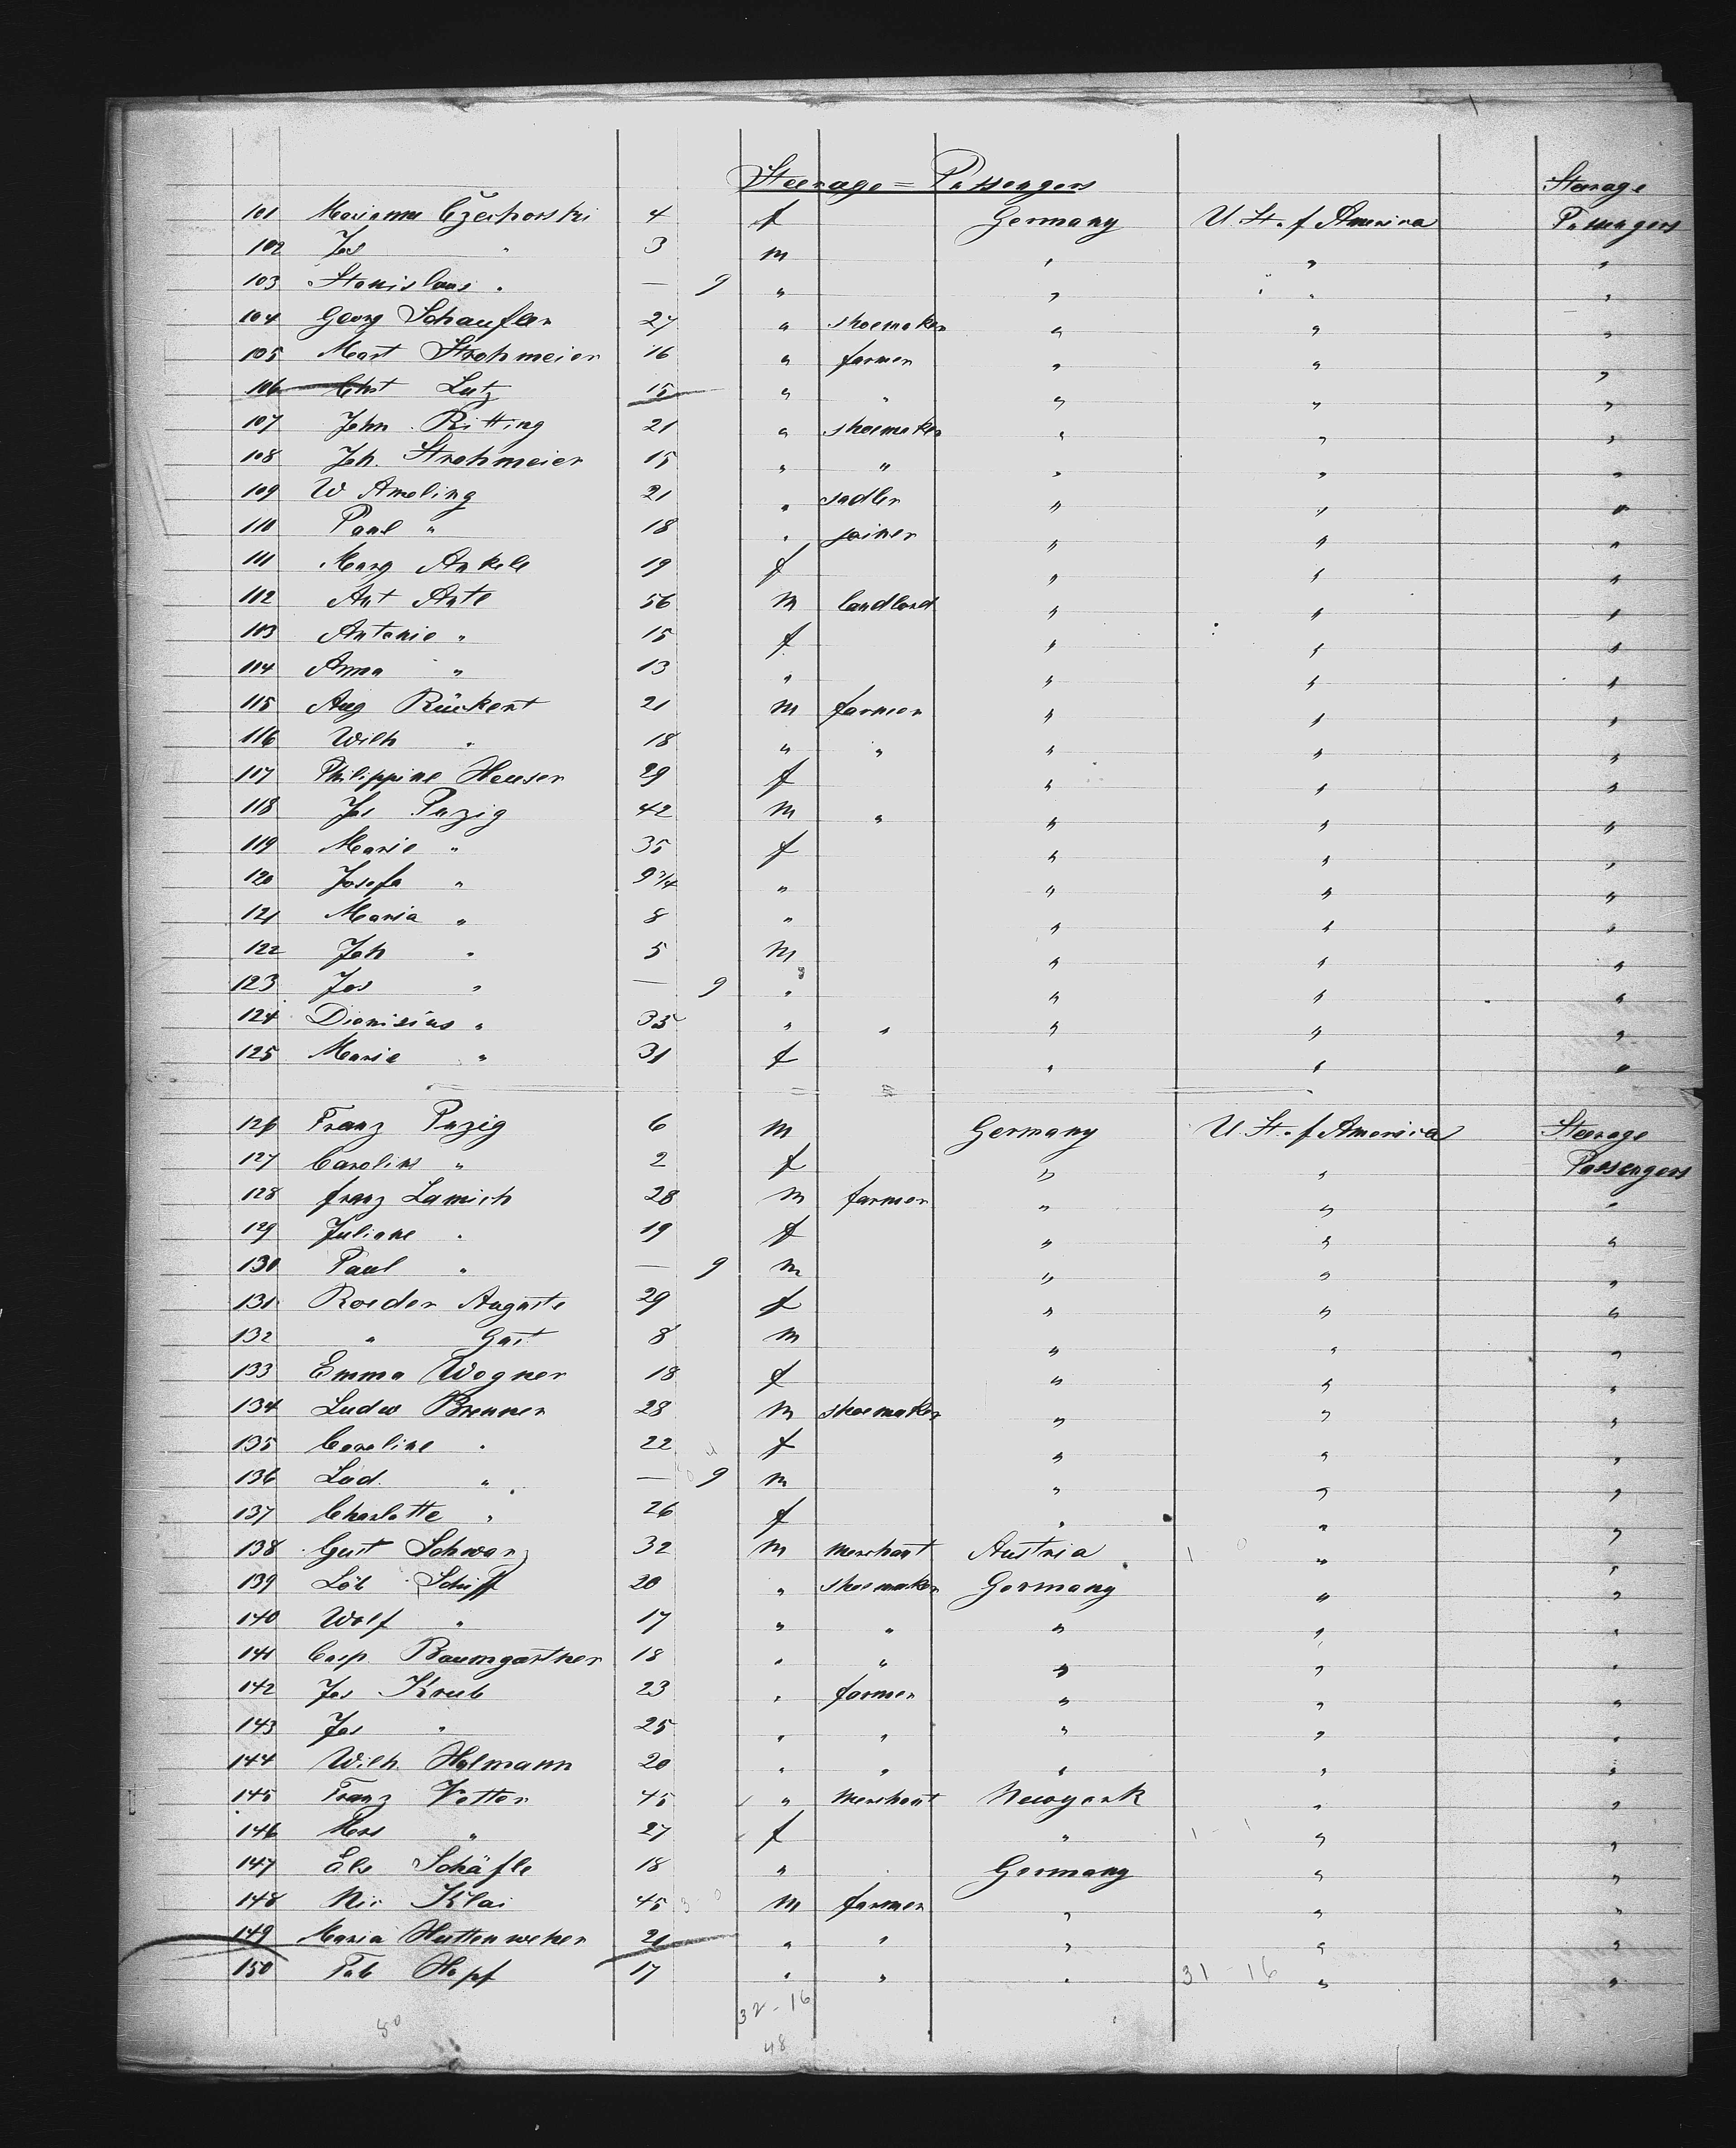 Steerage = Passengers
Steerage
101 Marianna Czechorski 4 f Germany U. St. of America Passengers
102 Jos " 3 m " " "
103 Stanislaus " — 9 " " " "
104 Georg Schaufler 27 " shoemaker " " "
105 Mart Strohmeier 16 " farmer " " "
106 Chst Lutz 15 " " " " "
107 John Ritting 21 " shoemaker " " "
108 Joh. Strohmeier 15 " " " " "
109 W Ameling 21 " sadler " " "
110 Paul " 18 " joiner " " "
111 Marg Ankele 19 f " " "
112 Ant Ante 56 m landlord " " "
103 Antonie " 15 f " " "
114 Anna " 13 " " " "
115 Aug Rückert 21 m farmer " " "
116 Wilh " 18 " " " " "
117 Philippine Heuser 29 f " " "
118 Jos Puzig 42 m " " " "
119 Marie " 35 f " " "
120 Josefa " 9 3/4 " " " "
121 Maria " 8 " " " "
122 Joh " 5 m " " "
123 Jos " — 9 " " " "
124 Dionisius " 35 " " " " "
125 Marie " 31 f " " "
126 Franz Puzig 6 m Germany U. St. of America Steerage
127 Caroline " 2 f " " Passengers
128 franz Lamich 28 m farmer " " "
129 Juliane " 19 f " " "
130 Paul " — 9 m " " "
131 Roeder Auguste 29 f " " "
132 " Gust 8 m " " "
133 Emma Wagner 18 f " " "
134 Ludw Brenner 28 m shoemaker " " "
135 Caroline " 22 f " " "
136 Lud. " — 9 m " " "
137 Charlotte " 26 f " " "
138 Gust Schwarz 32 m merchant Austria 1 0 " "
139 Löb Schiff 20 " shoemaker Germany " "
140 Wolf " 17 " " " " "
141 Casp. Baumgartner 18 " " " " "
142 Jos Krub 23 " farmer " " "
143 Jos " 25 " " " " "
144 Wilh Holmann 20 " " " " "
145 Franz Vetter 45 " merchant Newyork " "
146 Mrs " 27 f " 1 - 1 " "
147 Else Schäfle 18 " Germany " "
148 Nic Klai 45 m farmer " " "
149 Maria Huttenweher 21 " " " " "
150 Hopf 17 " " " 31 - 16 " "
32 - 16
50
48